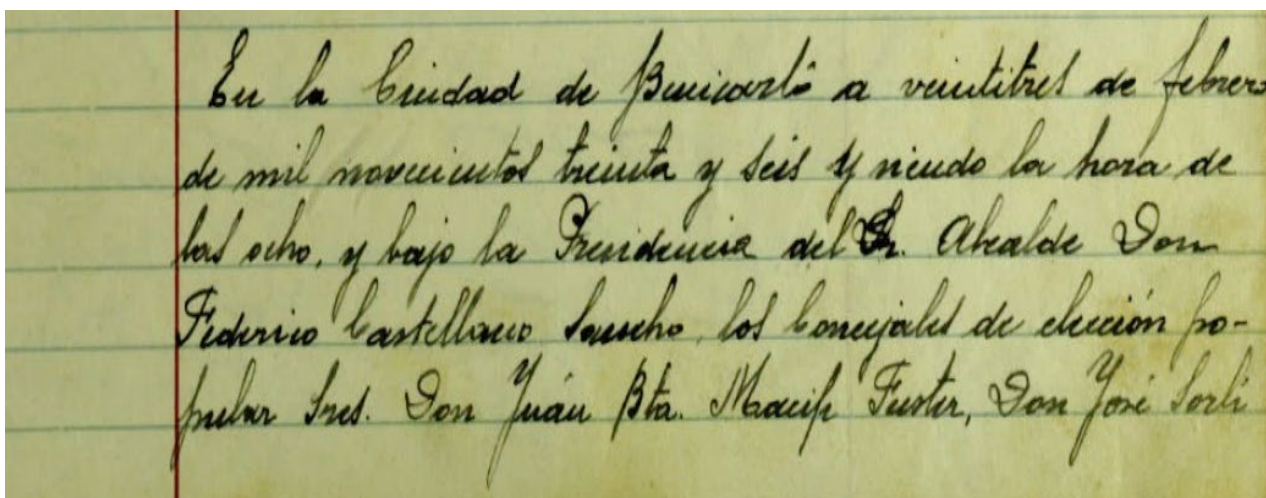 En la Ciudad de Benicarló a veintitres de febrero
de mil novecientos treinta y seis y siendo la hora de
las ocho, y bajo la Presidencia del Sr. Alcalde Don
Federico Castellano Sancho, los Concejales de elección po-
pular Sres. Don Juán Bta. Macip Fuster, Don José Sorlí